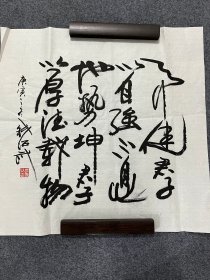 天行健君子
以自强不息
地势坤君子
以厚德载物
庚寅之冬